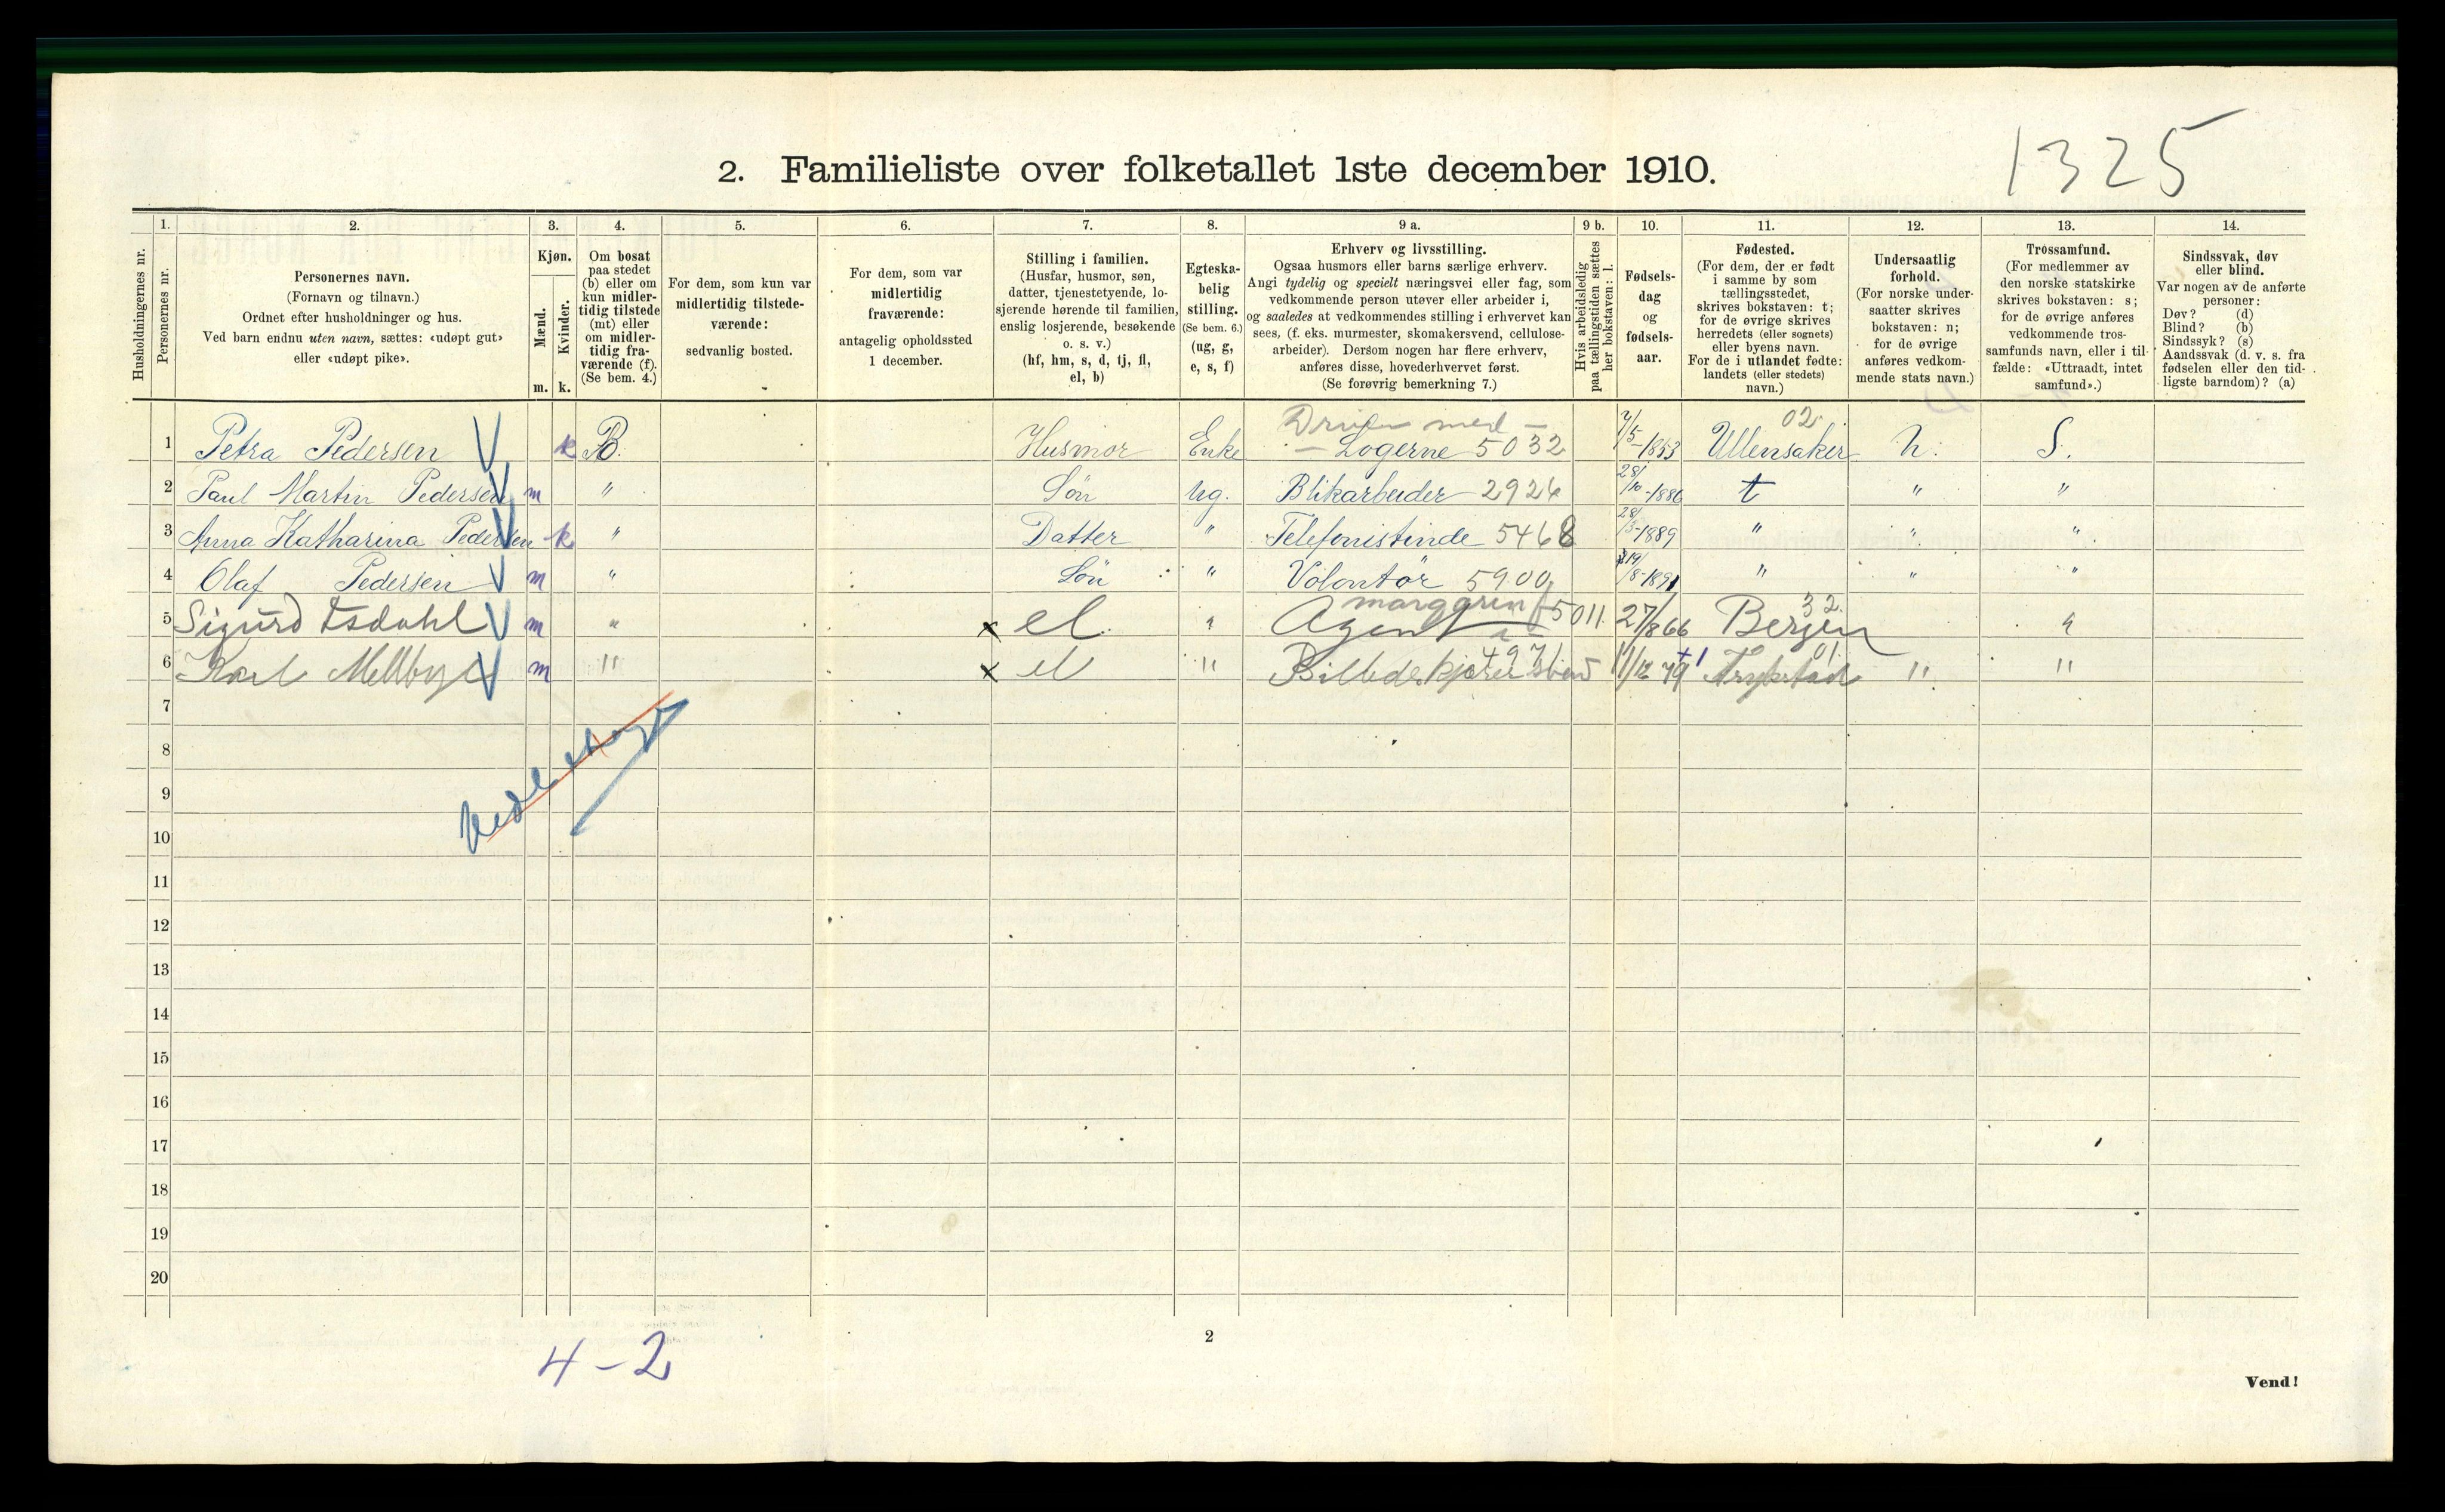 1325
2. Familieliste over folketallet 1ste december 1910.
Husholdningernes nr.
1.
Personernes nr.
2.
Personernes navn.
(Fornavn og tilnavn.)
Ordnet efter husholdninger og hus.
Ved barn endnu uten navn, sættes: «udøpt gut»
eller «udøpt pike».
3.
Kjøn.
Mænd.
Kvinder.
m. k.
4.
Om bosat
paa stedet
(b) eller om
kun midler-
tidig tilstede
(mt) eller
om midler-
tidig fra-
værende (f).
(Se bem. 4.)
5.
For dem, som kun var
midlertidig tilstede-
værende:
sedvanlig bosted.
6.
For dem, som var
midlertidig
fraværende:
antagelig opholdssted
1 december.
7.
Stilling i familien.
(Husfar, husmor, søn,
datter, tjenestetyende, lo-
sjerende hørende til familien,
enslig losjerende, besøkende
o. s. v.)
(hf, hm, s, d, tj, fl,
el, b)
8.
Egteska-
belig
stilling.
(Se bem. 6.)
(ug, g,
e, s, f)
9 a.
Erhverv og livsstilling.
Ogsaa husmors eller barns særlige erhverv.
Angi tydelig og specielt næringsvei eller fag, som
vedkommende person utøver eller arbeider i,
og saaledes at vedkommendes stilling i erhvervet kan
sees, (f. eks. murmester, skomakersvend, cellulose-
arbeider). Dersom nogen har flere erhverv,
anføres disse, hovederhvervet først.
(Se forøvrig bemerkning 7.)
9 b.
Hvis arbeidsledig
paa tællingstiden sættes
her bokstaven: l.
10.
Fødsels-
dag
og
fødsels-
aar.
11.
Fødested.
(For dem, der er født
i samme by som
tællingsstedet,
skrives bokstaven: t;
for de øvrige skrives
herredets (eller sognets)
eller byens navn.
For de i utlandet fødte:
landets (eller stedets)
navn.)
12.
Undersaatlig
forhold.
(For norske under-
saatter skrives
bokstaven: n;
for de øvrige
anføres vedkom-
mende stats navn.)
13.
Trossamfund.
(For medlemmer av
den norske statskirke
skrives bokstaven: s;
for de øvrige anføres
vedkommende tros-
samfunds navn, eller i til-
fælde: «Uttraadt, intet
samfund».)
14.
Sindssvak, døv
eller blind.
Var nogen av de anførte
personer:
Døv? (d)
Blind? (b)
Sindssyk? (s)
Aandssvak (d. v. s. fra
fødselen eller den tid-
ligste barndom)? (a)
Driver med — 02
1 Petra Pedersen V k B. Husmor Enke — Logerne 5032 7/5-1853 Ullensaker n. S.
2 Paul Martin Pedersen V m " Søn ug. Blikarbeider 2924 28/10-1886 t " "
3 Anna Katharina Pedersen V k " Datter " Telefonistinde 5468 28/3-1889 " " "
4 Olaf Pedersen V m " Søn " Volontør 5900 19/8-1891 " " "
margarin 32
5 Sigurd V m " x el. " Agent 5011 27/8 66 Bergen "
01
6 Karl Mellbye V m " x el " 11/12 79 " "
7
8
9
10
11
12
13
14
15
16
17
18
19
20
4-2
2
Vend!